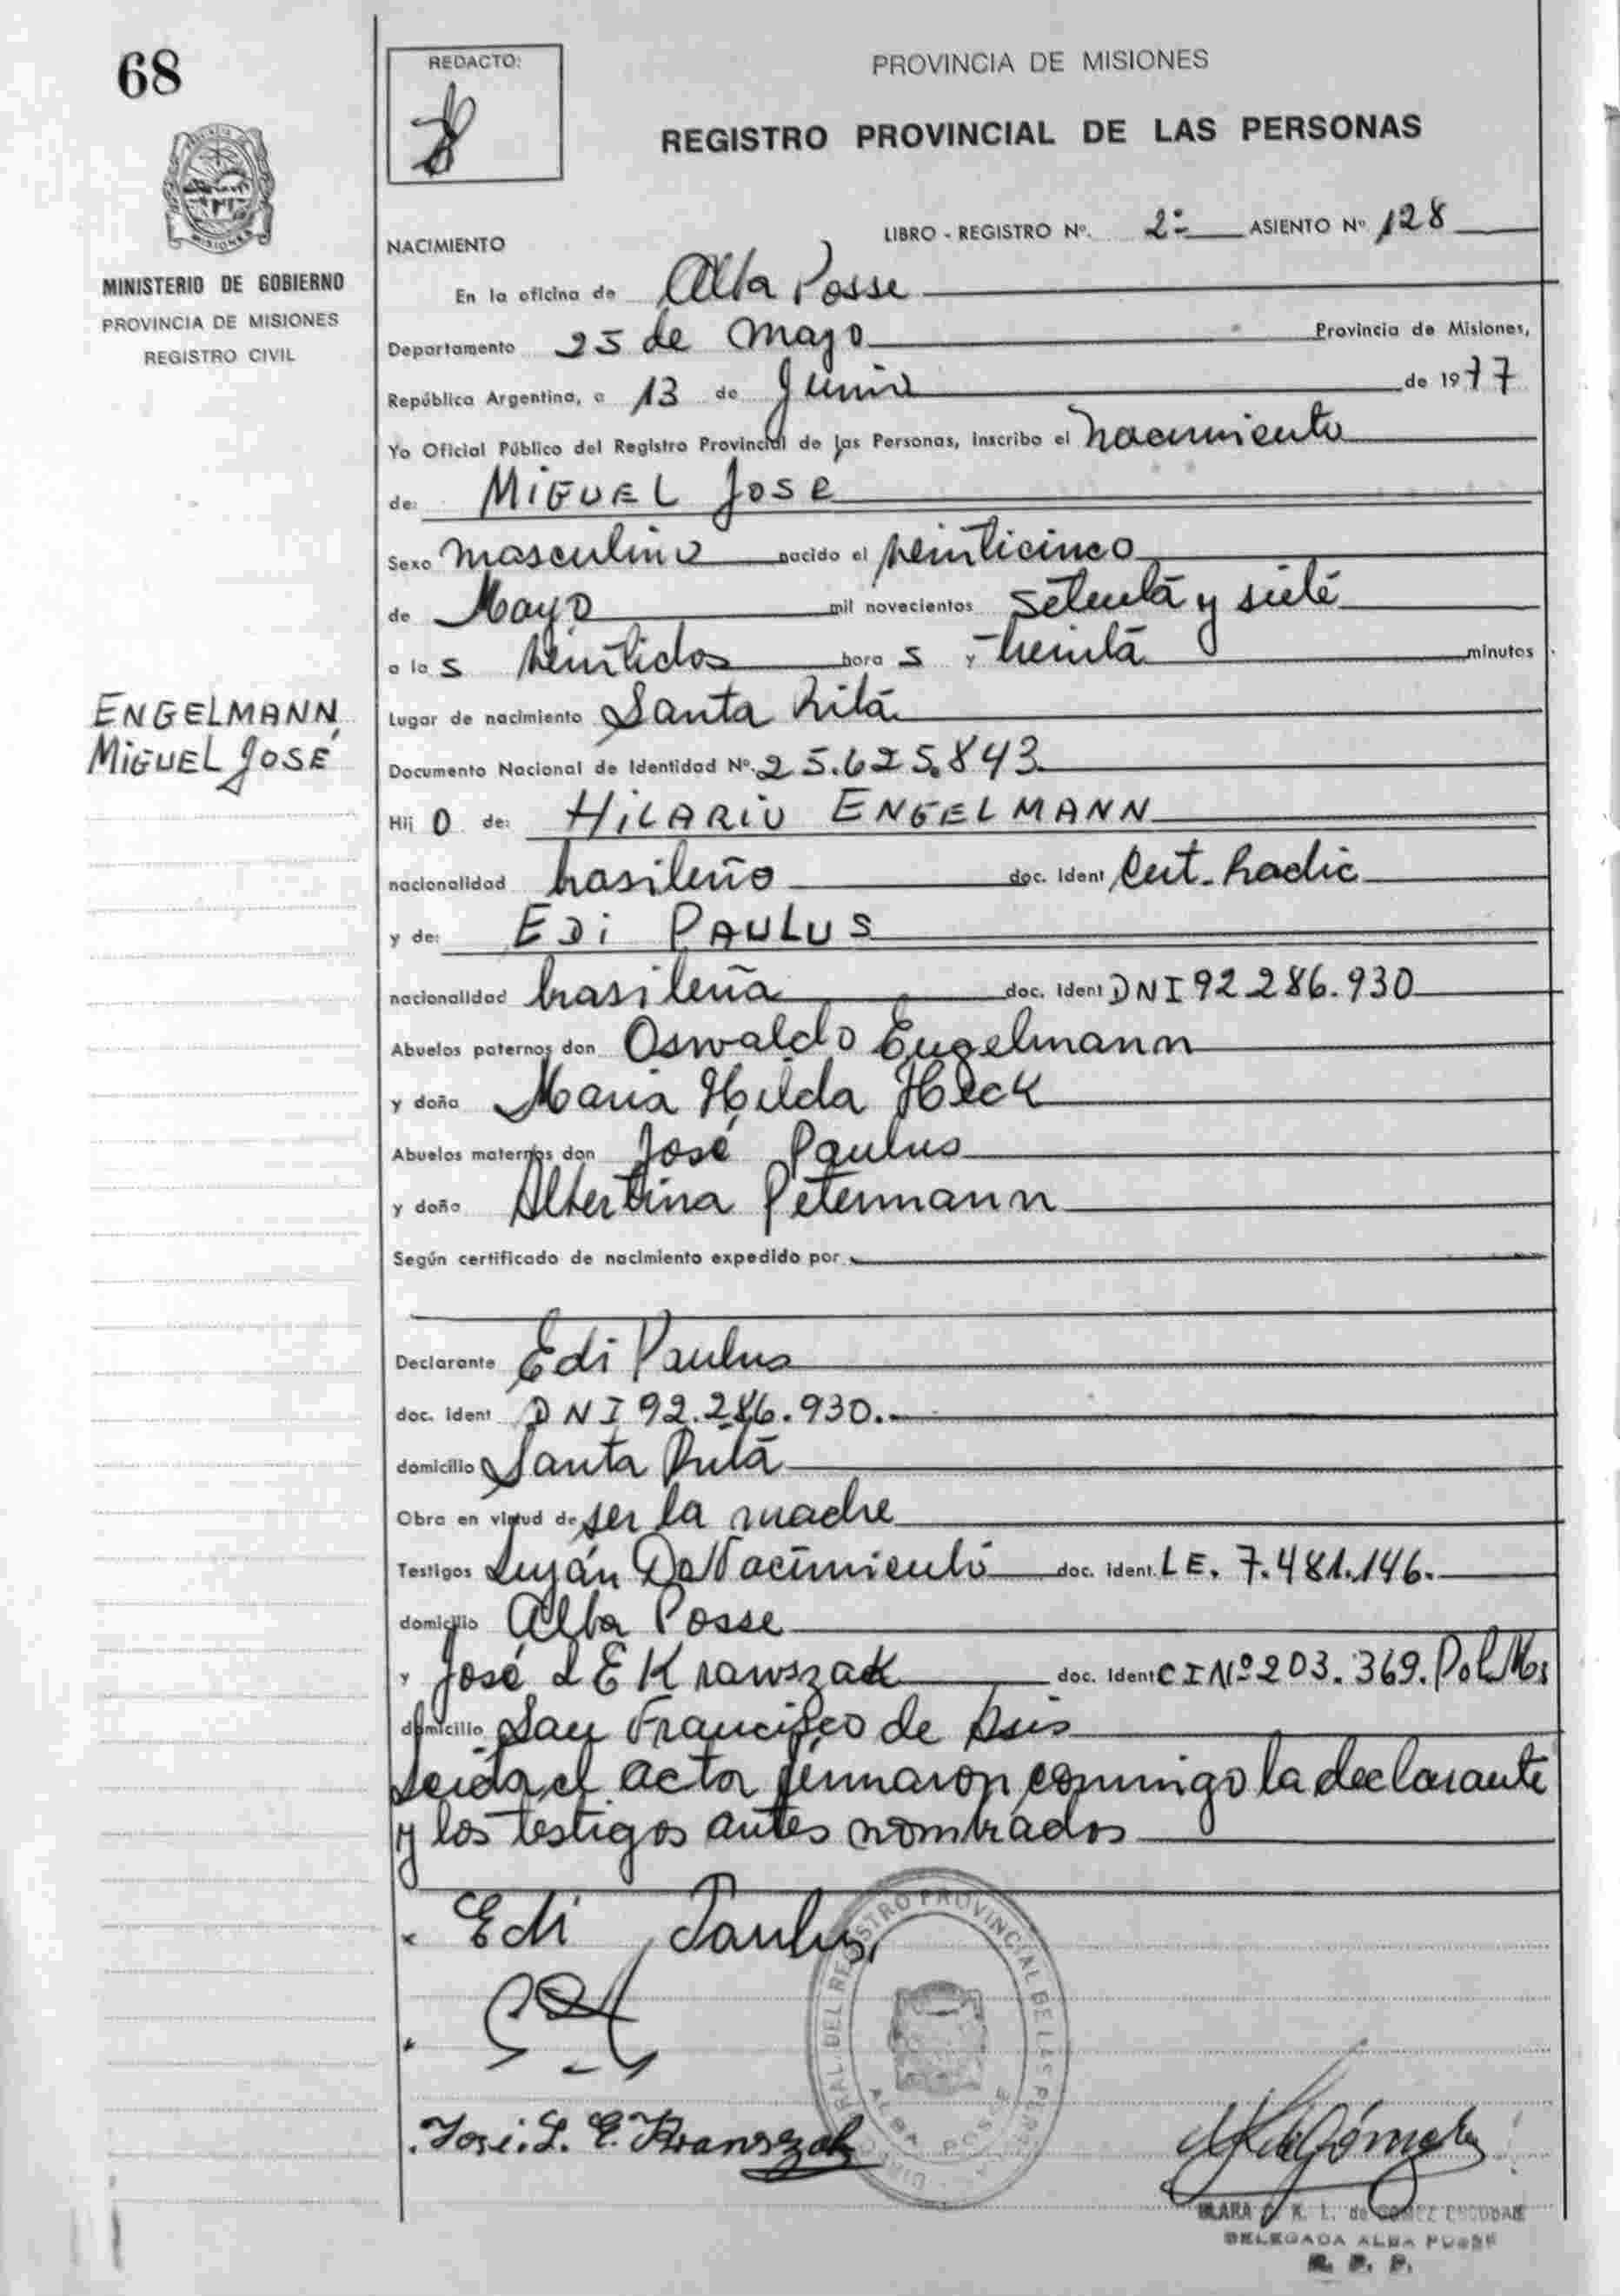 68
MINISTERIO DE GOBIERNO
PROVINCIA DE MISIONES
REGISTRO CIVIL
ENGELMANN,
MIGUEL JOSÉ
REDACTO:
PROVINCIA DE MISIONES
REGISTRO PROVINCIAL DE LAS PERSONAS
LIBRO - REGISTRO Nº. 2º ASIENTO Nº 128
NACIMIENTO
En la oficina de Alba Posse
Departamento 25 de Mayo Provincia de Misiones,
República Argentina, a 13 de Junio de 1977
Yo Oficial Público del Registro Provincial de las Personas, inscribo el nacimiento
de: MIGUEL JOSE
Sexo masculino nacido el veinticinco
de Mayo mil novecientos setenta y siete
a las veintidos horas y treinta minutos
Lugar de nacimiento Santa Rita
Documento Nacional de Identidad Nº. 25.625.843
Hijo de: HILARIO ENGELMANN
nacionalidad brasileño doc. ident Cert. Radic
y de: EDI PAULUS
nacionalidad brasileña doc. ident DNI 92.286.930
Abuelos paternos don Oswaldo Engelmann
y doña Maria Hilda Heck
Abuelos maternos don José Paulus
y doña Albertina Petermann
Según certificado de nacimiento expedido por
Declarante Edi Paulus
doc. ident DNI 92.286.930.
domicilio Santa Rita
Obra en virtud de ser la madre
Testigos Luján Do Nacimiento doc. ident. LE. 7.481.146.
domicilio Alba Posse
y José L E Krawszak doc. ident CI Nº 203.369. Pol Mis
domicilio San Francisco de Asis
Leida el acta firmaron conmigo la declarante
y los testigos antes nombrados
Edi Paulus
José. L. E. Krawszak
REGISTRO PROVINCIAL DE LAS PERS
ALBA POSSE
CLARA C. K. L. de GOMEZ ESCOBAR
DELEGADA ALBA POSSE
R. P. P.